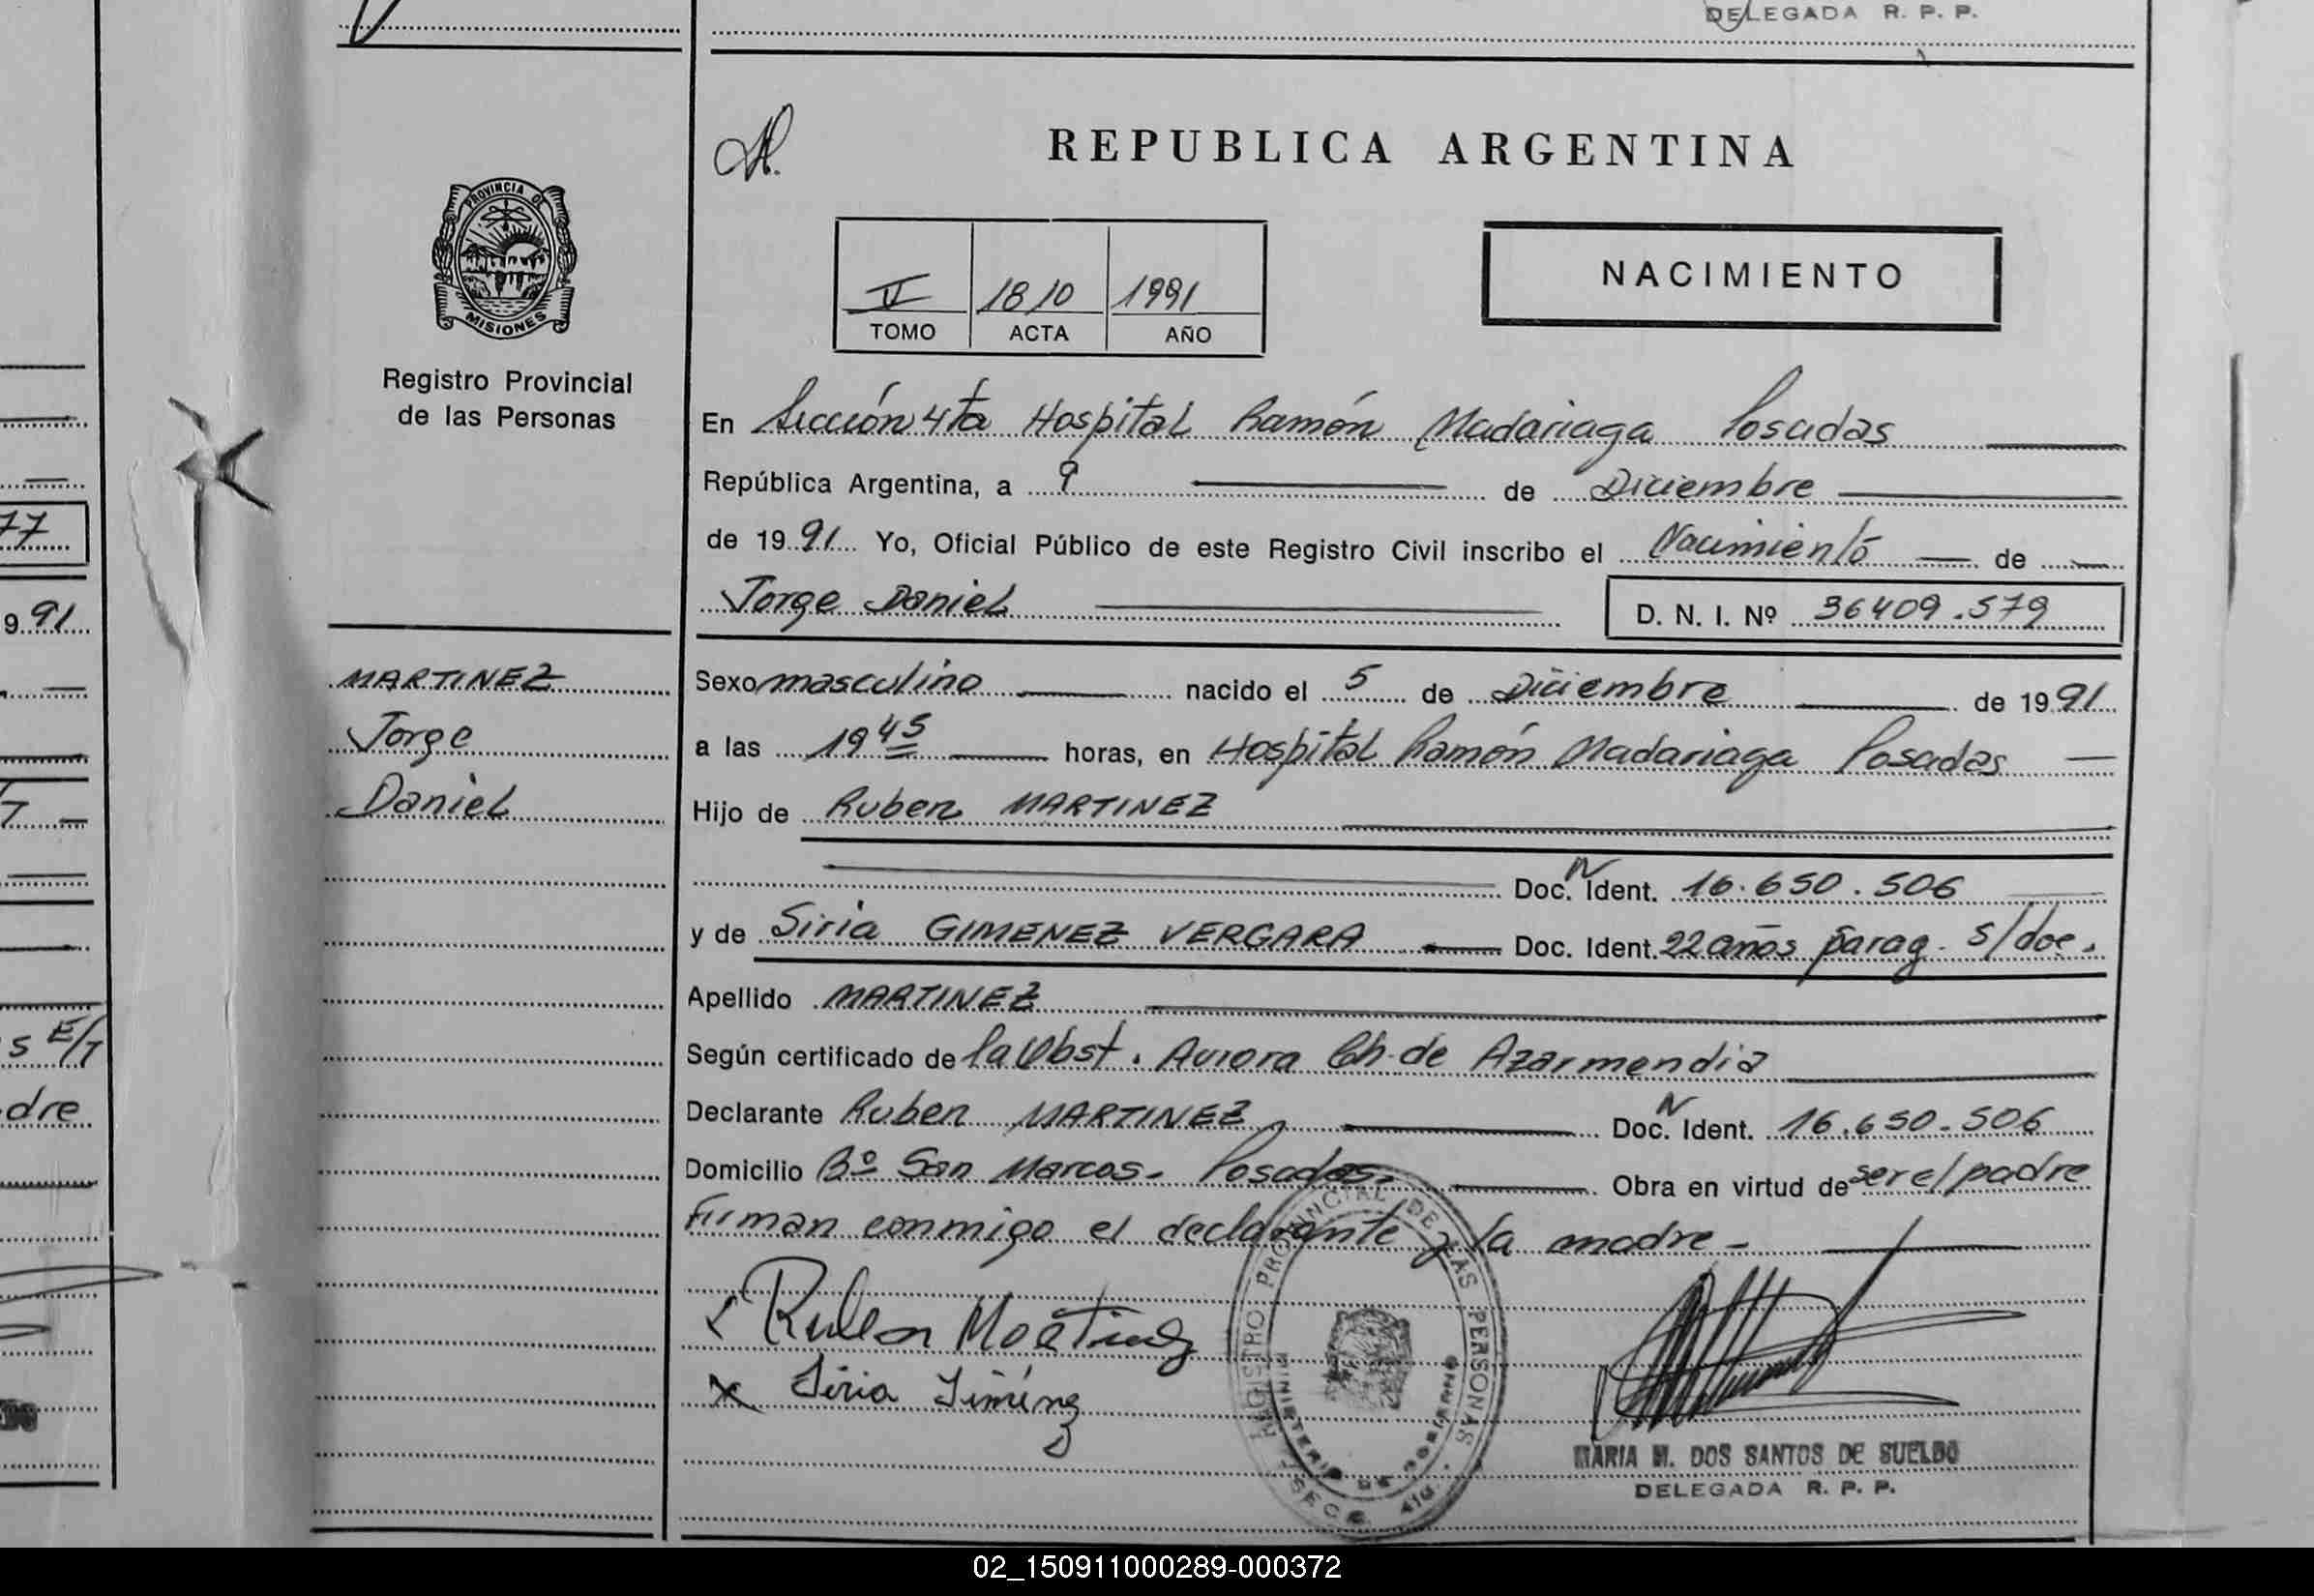 DELEGADA R. P. P.
REPUBLICA ARGENTINA
PROVINCIA DE
MISIONES
Registro Provincial
de las Personas
1810 1991
TOMO ACTA AÑO
NACIMIENTO
En Sección 4ta Hospital Ramón Madariaga Posadas
República Argentina, a 9 de Diciembre
77
de 19 91 Yo, Oficial Público de este Registro Civil inscribo el Nacimiento de
9 91
Jorge Daniel D. N. I. Nº 36409.579
MARTINEZ
Jorge
Daniel
Sexo masculino nacido el 5 de Diciembre de 19 91
a las 19 45 horas, en Hospital Ramón Madariaga Posadas
Hijo de Ruben MARTINEZ
Doc. N Ident. 16.650.506
y de Siria GIMENEZ VERGARA Doc. Ident. 22 años parag. s/doc.
Apellido MARTINEZ
s E/T
Según certificado de la Obst. Aurora Ch. de Azarmendia
dre
Declarante Ruben MARTINEZ Doc. N Ident. 16.650.506
Domicilio Bº San Marcos - Posadas. Obra en virtud de ser el padre
Firman conmigo el declarante y la madre -
x Ruben Martinez
x Siria Jiménez
REGISTRO PROVINCIAL DE LAS PERSONAS
MINISTERIO DE GOBIERNO
MARIA M. DOS SANTOS DE SUELDO
DELEGADA R. P. P.
02_150911000289-000372